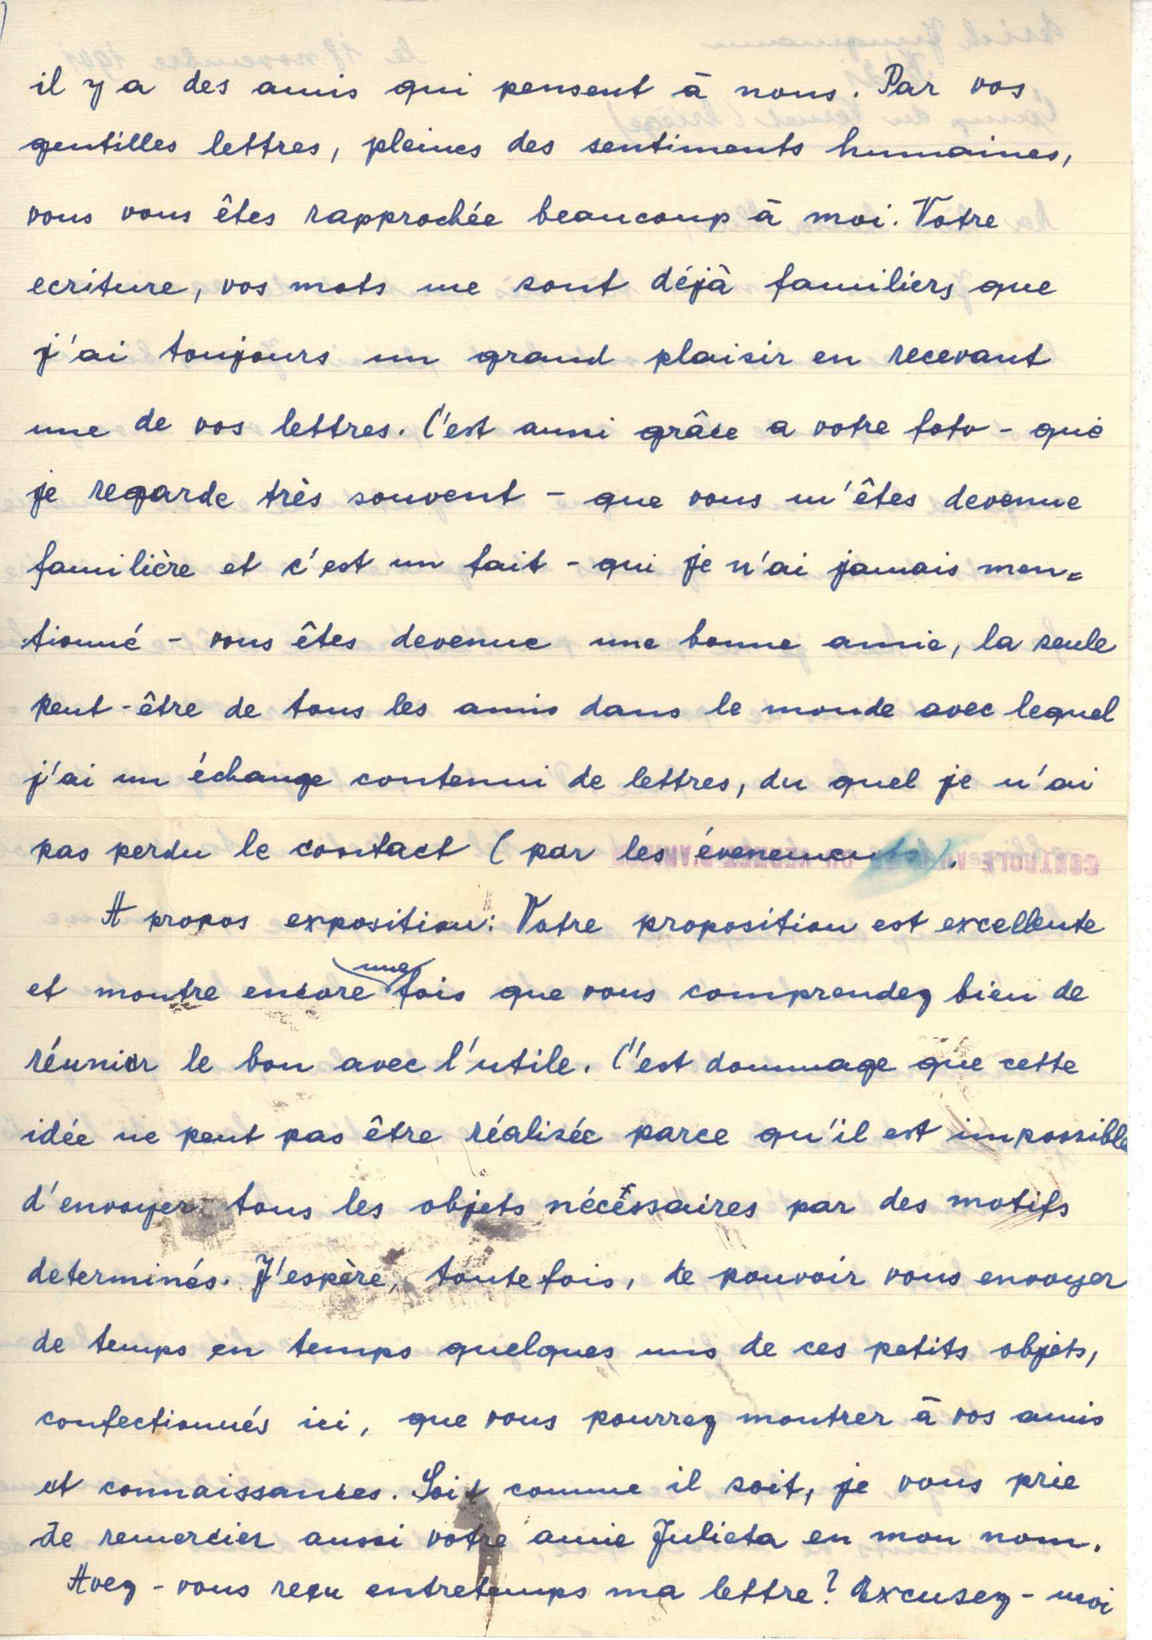 il y a des amis qui pensent à nous. Par vos
gentilles lettres, pleines des sentiments humaines,
vous vous êtes rapprochée beaucoup à moi. Votre
ecriture, vos mots me sont déjà familiers que
j'ai toujours un grand plaisir en recevant
une de vos lettres. C'est aussi grâce a votre foto - que
je regarde très souvent - que vous m'êtes devenue
familière et c'est un fait - qui je n'ai jamais men=
tionné - vous êtes devenue une bonne amie, la seule
peut-être de tous les amis dans le monde avec lequel
j'ai un échange contenui de lettres, du quel je n'ai
pas perdu le contact (par les évenements).
A propos exposition: Votre proposition est excellente
et montre encore une fois que vous comprendez bien de
réunier le bon avec l'utile. C'est dommage que cette
idée ne peut pas être réalisée parce qu'il est impossible
d'envoyer tous les objets nécéssaires par des motifs
determinés. J'espère, toutefois, de pouvoir vous envoyer
de temps en temps quelques uns de ces petits objets,
confectionnés ici, que vous pourrez montrer à vos amis
et connaissances. Soit comme il soit, je vous prie
de remercier aussi votre amie Julieta en mon nom.
Avez-vous reçu entretemps ma lettre? Excusez-moi